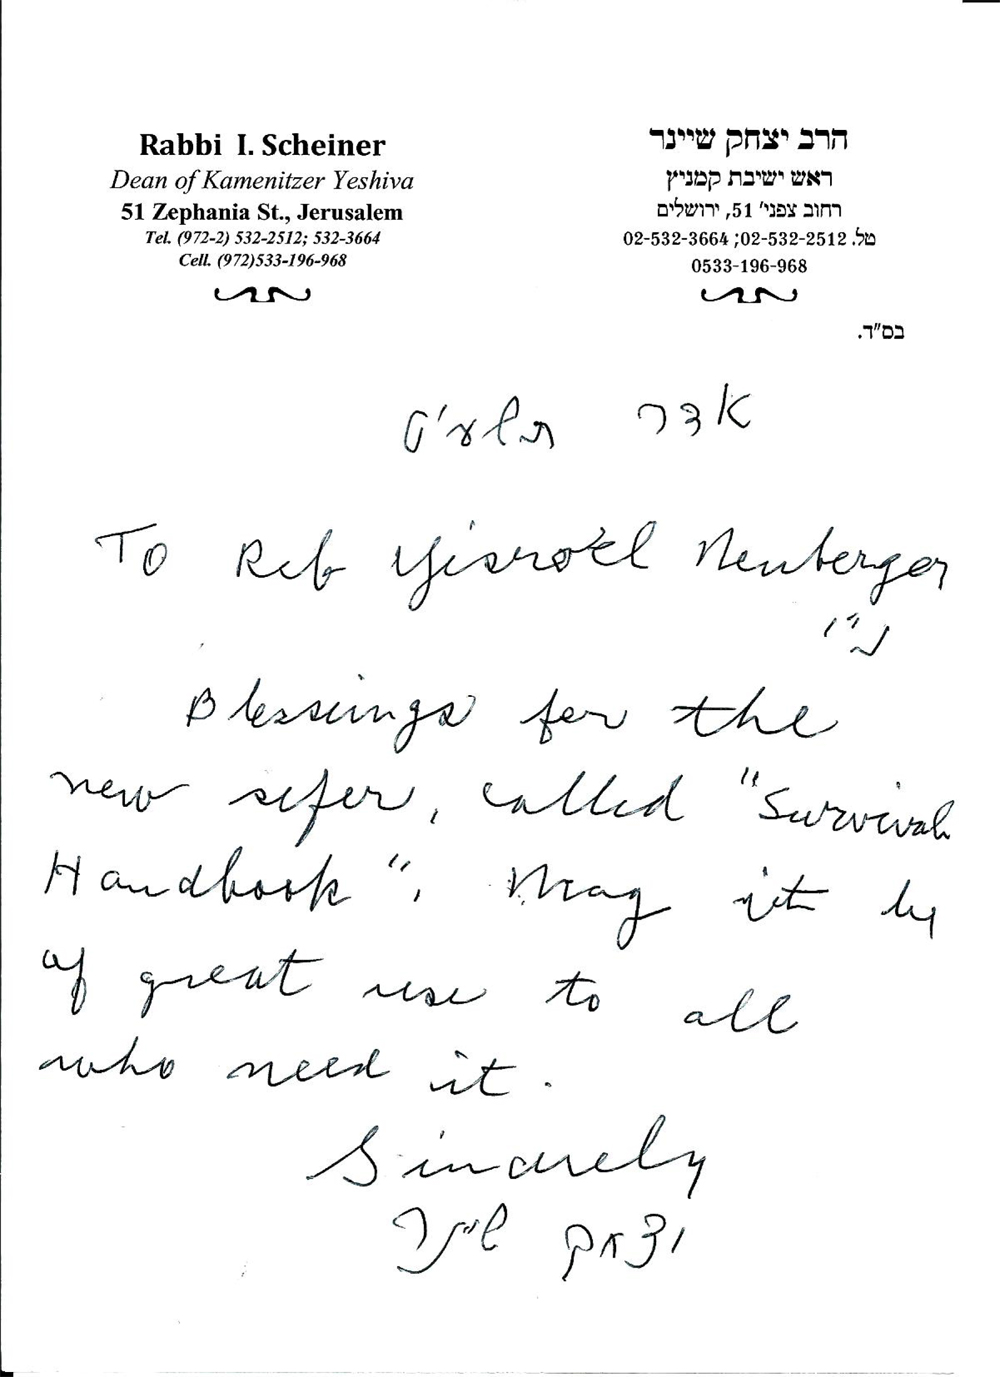 Rabbi I. Scheiner
Dean of Kamenitzer Yeshiva
51 Zephania St., Jerusalem
Tel. (972-2) 532-2512; 532-3664
Cell. (972)533-196-968
הרב יצחק שיינר
ראש ישיבת קמניץ
רחוב צפני' 51, ירושלים
טל. 02-532-2512; 02-532-3664
0533-196-968
בס"ד.
אדר תשע"ט
To Reb Yisro'el Neuberger
נ"י
Blessings for the
new sefer, called "Survival
Handbook". May it be
of great use to all
who need it.
Sincerely
יצחק שיינר